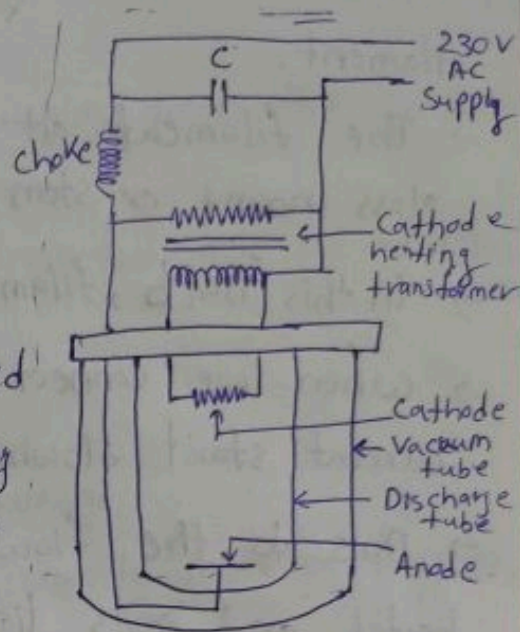 C
230V
AC
Supply
choke
Cathode
heating
transformer
Cathode
Vaccum
tube
Discharge
tube
Anode